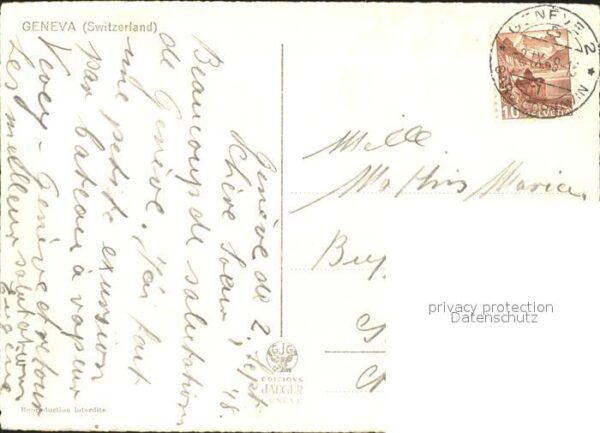 GENEVA (Switzerland)
Genève le 2. Sept. 48.
Chère Soeur,
Beaucoup de salutations
de Genève. J'ai fait
une petite exursion
par bateau à vapeur
Vevey - Genève et retour
Les meilleur salutations
Reproduction interdite
GJG
EDITIONS
JAEGER
GENÈVE
GENÈVE 2
10 HELVETIA
Mlle.
Mathis Maria,
privacy protection
Datenschutz